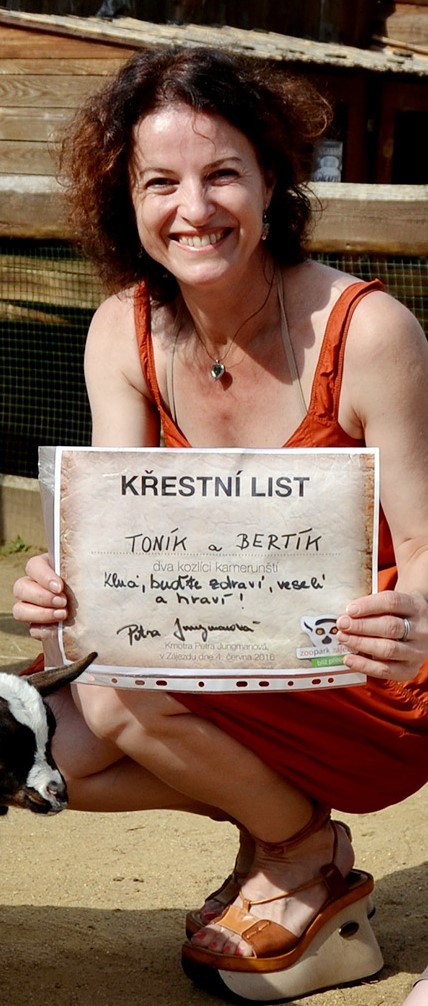 KŘESTNÍ LIST
TONÍK a BERTÍK
dva kozlíci kamerunští
Kluci, buďte zdraví, veselí
a hraví!
Petra Jungmanová
Kmotra Petra Jungmanová,
v Zájezdu dne 4. června 2016
zoopark